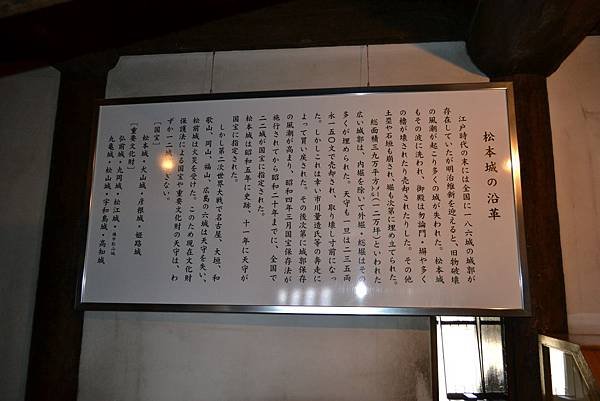 松本城の沿革
江戸時代の末には全国に一八六城の城郭が
存在していたが明治維新を迎えると、旧物破壊
の風潮が起こり多くの城が失われた。松本城
もその波に洗われ、御殿は勿論門・塀や多く
の櫓が壊されたり売却されたりした。その他
土塁や石垣も崩され、堀も次第に埋め立てられた。
総面積三九万平方㍍(一二万坪)といわれた
広い城郭は、内堀を除いて外堀・総堀はその
多くが埋められた。天守も一旦は二三五両
永一五〇文で売却され、取り壊し寸前になっ
た。しかしこれは幸い市川量造氏等の奔走に
よって買い戻された。その後次第に城郭保存
の風潮が高まり、昭和四年三月国宝保存法が
施行されてから昭和二十年までに、全国で
二二城が国宝に指定された。
松本城は昭和五年に史跡、十一年に天守が
国宝に指定された。
しかし第二次世界大戦で名古屋、大垣、和
歌山、岡山、福山、広島の六城は天守を失い、
松前城は火災を受けた。このため現在文化財
保護法による国宝や重要文化財の天守は、わ
ずか一二城にすぎない。
[国宝]
松本城・犬山城・彦根城・姫路城
[重要文化財]
弘前城・丸岡城・松江城・備中松山城
丸亀城・松山城・宇和島城・高知城